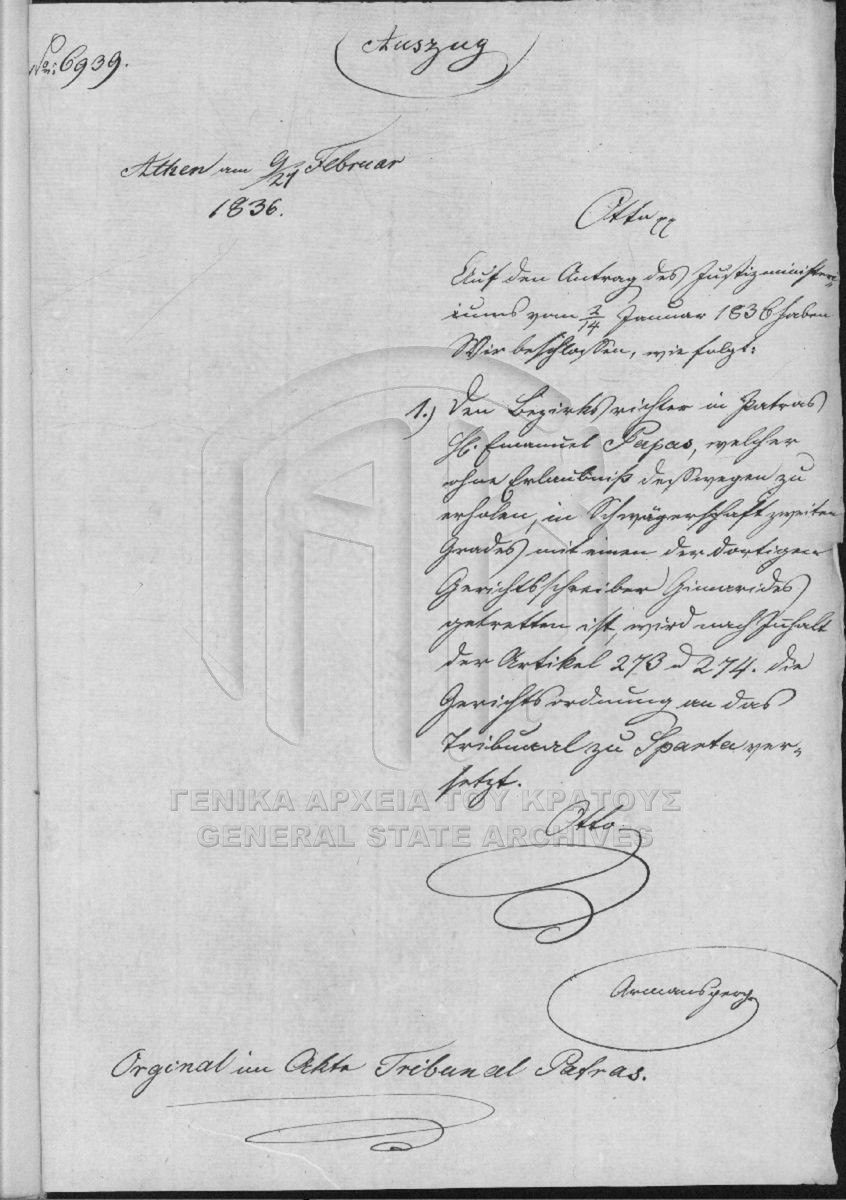 Auszug
No. 6939.
Athen am 9/21 Februar
1836.
Otto
Auf den Antrag des Justizministeri-
iums vom 2/14 Januar 1836 haben
Wir beschlossen, wie folgt:
1.) Den Bezirksrichter in Patras
H. Emanuel Papas, welcher
ohne Erlaubniß deßwegen zu
erholen, in Schwägerschaft zweiten
Grades mit einen der dortigen
Gerichtsschreiber
getretten ist, wird nach Inhalt
der Artikel 273 u 274. die
Gerichtsordnung an das
Tribunal zu Sparta ver-
setzt.
Otto
Armansperg
Orginal im Akte Tribunal Patras.
ΓΕΝΙΚΑ ΑΡΧΕΙΑ ΤΟΥ ΚΡΑΤΟΥΣ
GENERAL STATE ARCHIVES